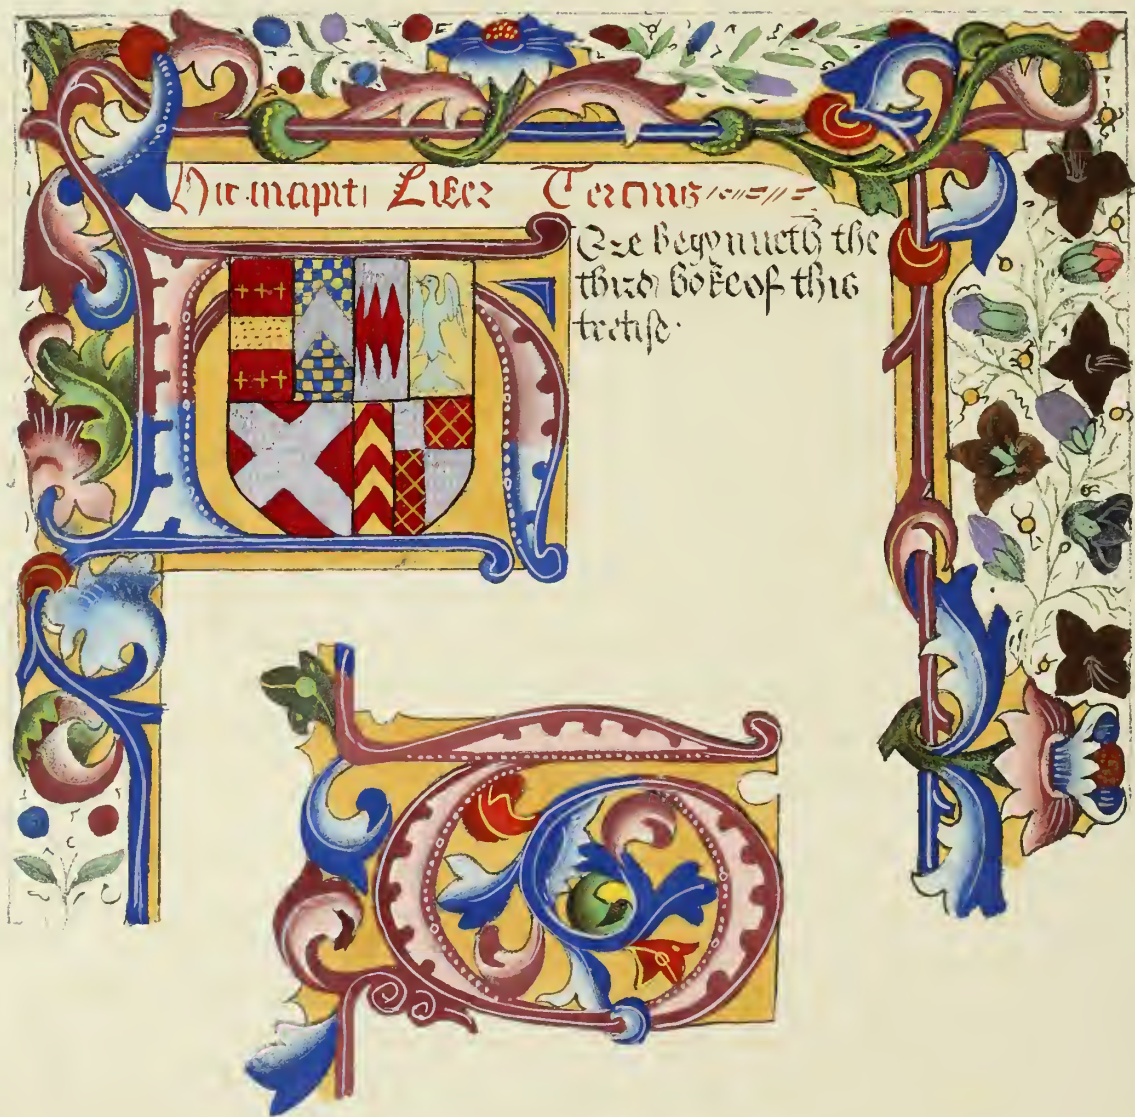 Hic incipiti Liber Tercius
Ere begynneth the
third boke of this
tretise.